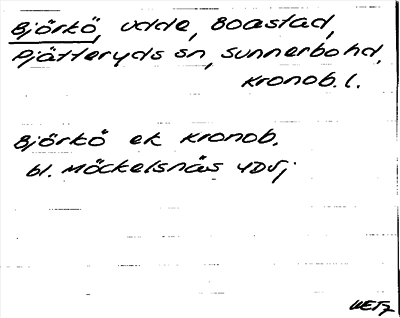 Björkö, udde, Boastad,
Pjätteryds sn, Sunnerbo hd,
Kronob. l.
Björkö ek Kronob.
bl. Möckelsnäs 4Dvj